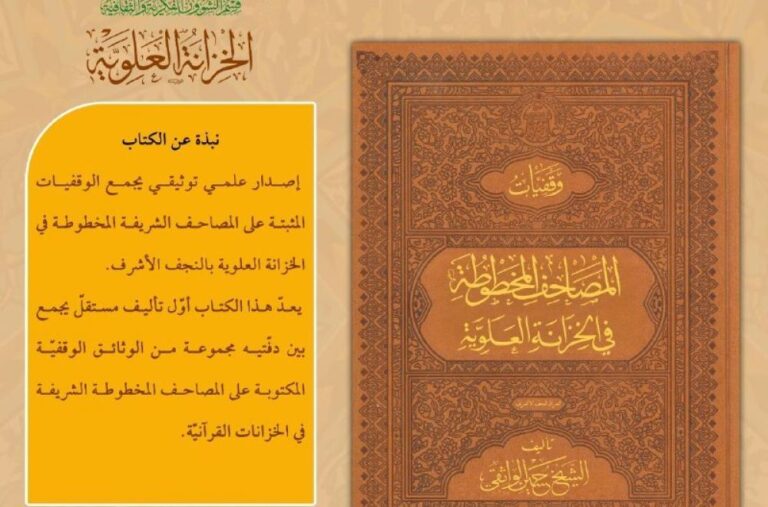 قسم الشؤون الفكرية والثقافية
الخزانة العلوية
نبذة عن الكتاب
إصدار علمي توثيقي يجمع الوقفيات
المثبتة على المصاحف الشريفة المخطوطة في
الخزانة العلوية بالنجف الأشرف.
يعدّ هذا الكتاب أوّل تأليف مستقلّ يجمع
بين دفّتيه مجموعة من الوثائق الوقفيّة
المكتوبة على المصاحف المخطوطة الشريفة
في الخزانات القرآنيّة.
وقفيات
المصاحف المخطوطة
في الخزانة العلوية
تأليف
الشيخ حسين الواثقي